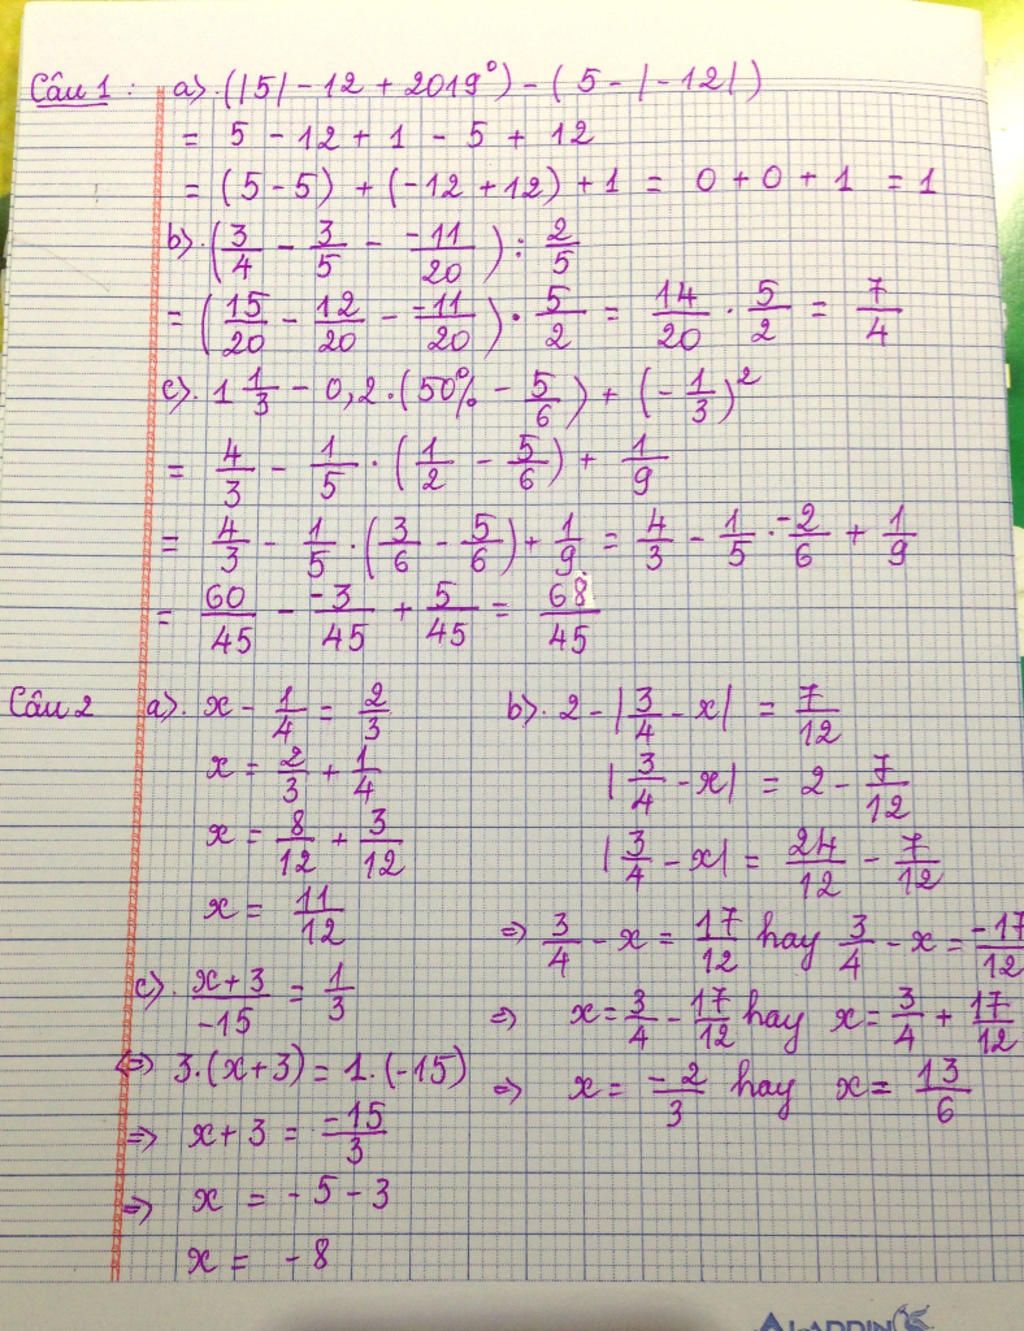 Câu 1 : a). (|5| - 12 + 2019⁰) - (5 - |-12|)
= 5 - 12 + 1 - 5 + 12
= (5 - 5) + (-12 + 12) + 1 = 0 + 0 + 1 = 1
b). (3/4 - 3/5 - -11/20) : 2/5
= (15/20 - 12/20 - -11/20) . 5/2 = 14/20 . 5/2 = 7/4
c). 1 1/3 - 0,2 . (50% - 5/6) + (-1/3)²
= 4/3 - 1/5 . (1/2 - 5/6) + 1/9
= 4/3 - 1/5 . (3/6 - 5/6) + 1/9 = 4/3 - 1/5 . -2/6 + 1/9
= 60/45 - -3/45 + 5/45 = 68/45
Câu 2 a). x - 1/4 = 2/3
x = 2/3 + 1/4
x = 8/12 + 3/12
x = 11/12
b). 2 - |3/4 - x| = 7/12
|3/4 - x| = 2 - 7/12
|3/4 - x| = 24/12 - 7/12
=> 3/4 - x = 17/12 hay 3/4 - x = -17/12
=> x = 3/4 - 17/12 hay x = 3/4 + 17/12
=> x = -2/3 hay x = 13/6
c). x+3/-15 = 1/3
<=> 3.(x+3) = 1.(-15)
=> x + 3 = -15/3
=> x = -5 - 3
x = -8
ALADDIN